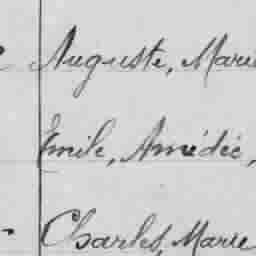 Auguste, Marie
Emile, Amédée,
Charles, Marie